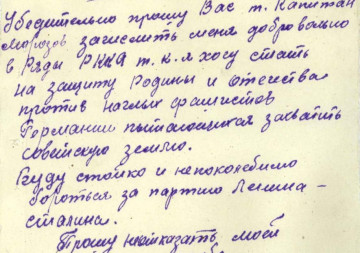 Убедительно прошу Вас т. Капитан
Морозов зачислить меня добровольно
в Ряды РККА т.к. я хочу стать
на защиту Родины и отечества
против наглых фашистов
Германии пытающихся захватить
советскую землю.
Буду стойко и непоколебимо
бороться за партию Ленина –
Сталина.
Прошу не отказать моей